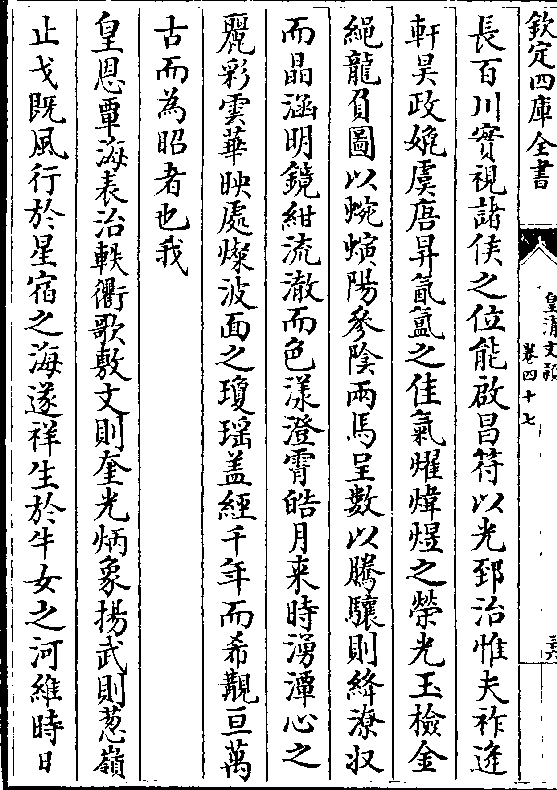 欽定四庫全書
皇清文頴
卷四十七
長百川實視諸侯之位能啟昌符以光郅治惟夫祚逢
軒昊政媲虞唐昇氤氳之佳氣燿煒煜之榮光玉檢金
繩龍負圖以蜿蟺陽參陰兩馬呈數以騰驤則絳潦収
而晶涵明鏡紺流澈而色漾澄霄皓月来時湧潭心之
麗彩雲華映處燦波面之瓊瑶盖經千年而希覯亘萬
古而為昭者也我
皇恩覃海表治軼衢歌敷文則奎光炳象揚武則葱嶺
止戈既風行於星宿之海遂祥生於牛女之河維時日